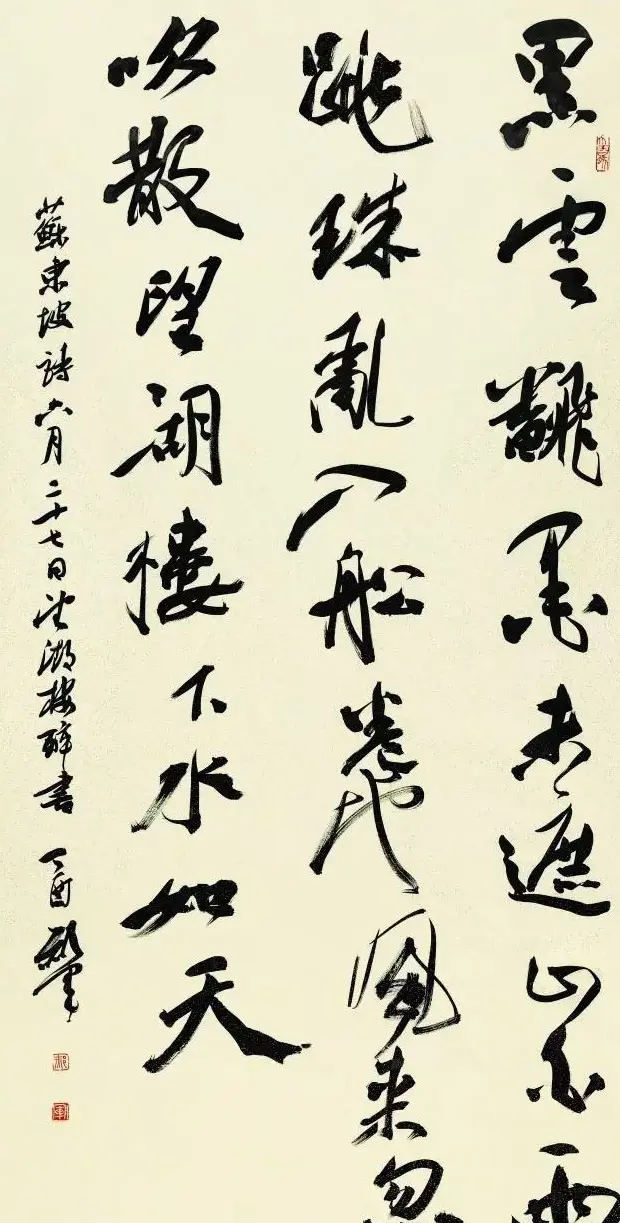 黑雲飜墨未遮山白雨
跳珠亂入舩卷地風来忽
吹散望湖樓下水如天
蘇東坡詩六月二十七日望湖樓醉書 丁酉